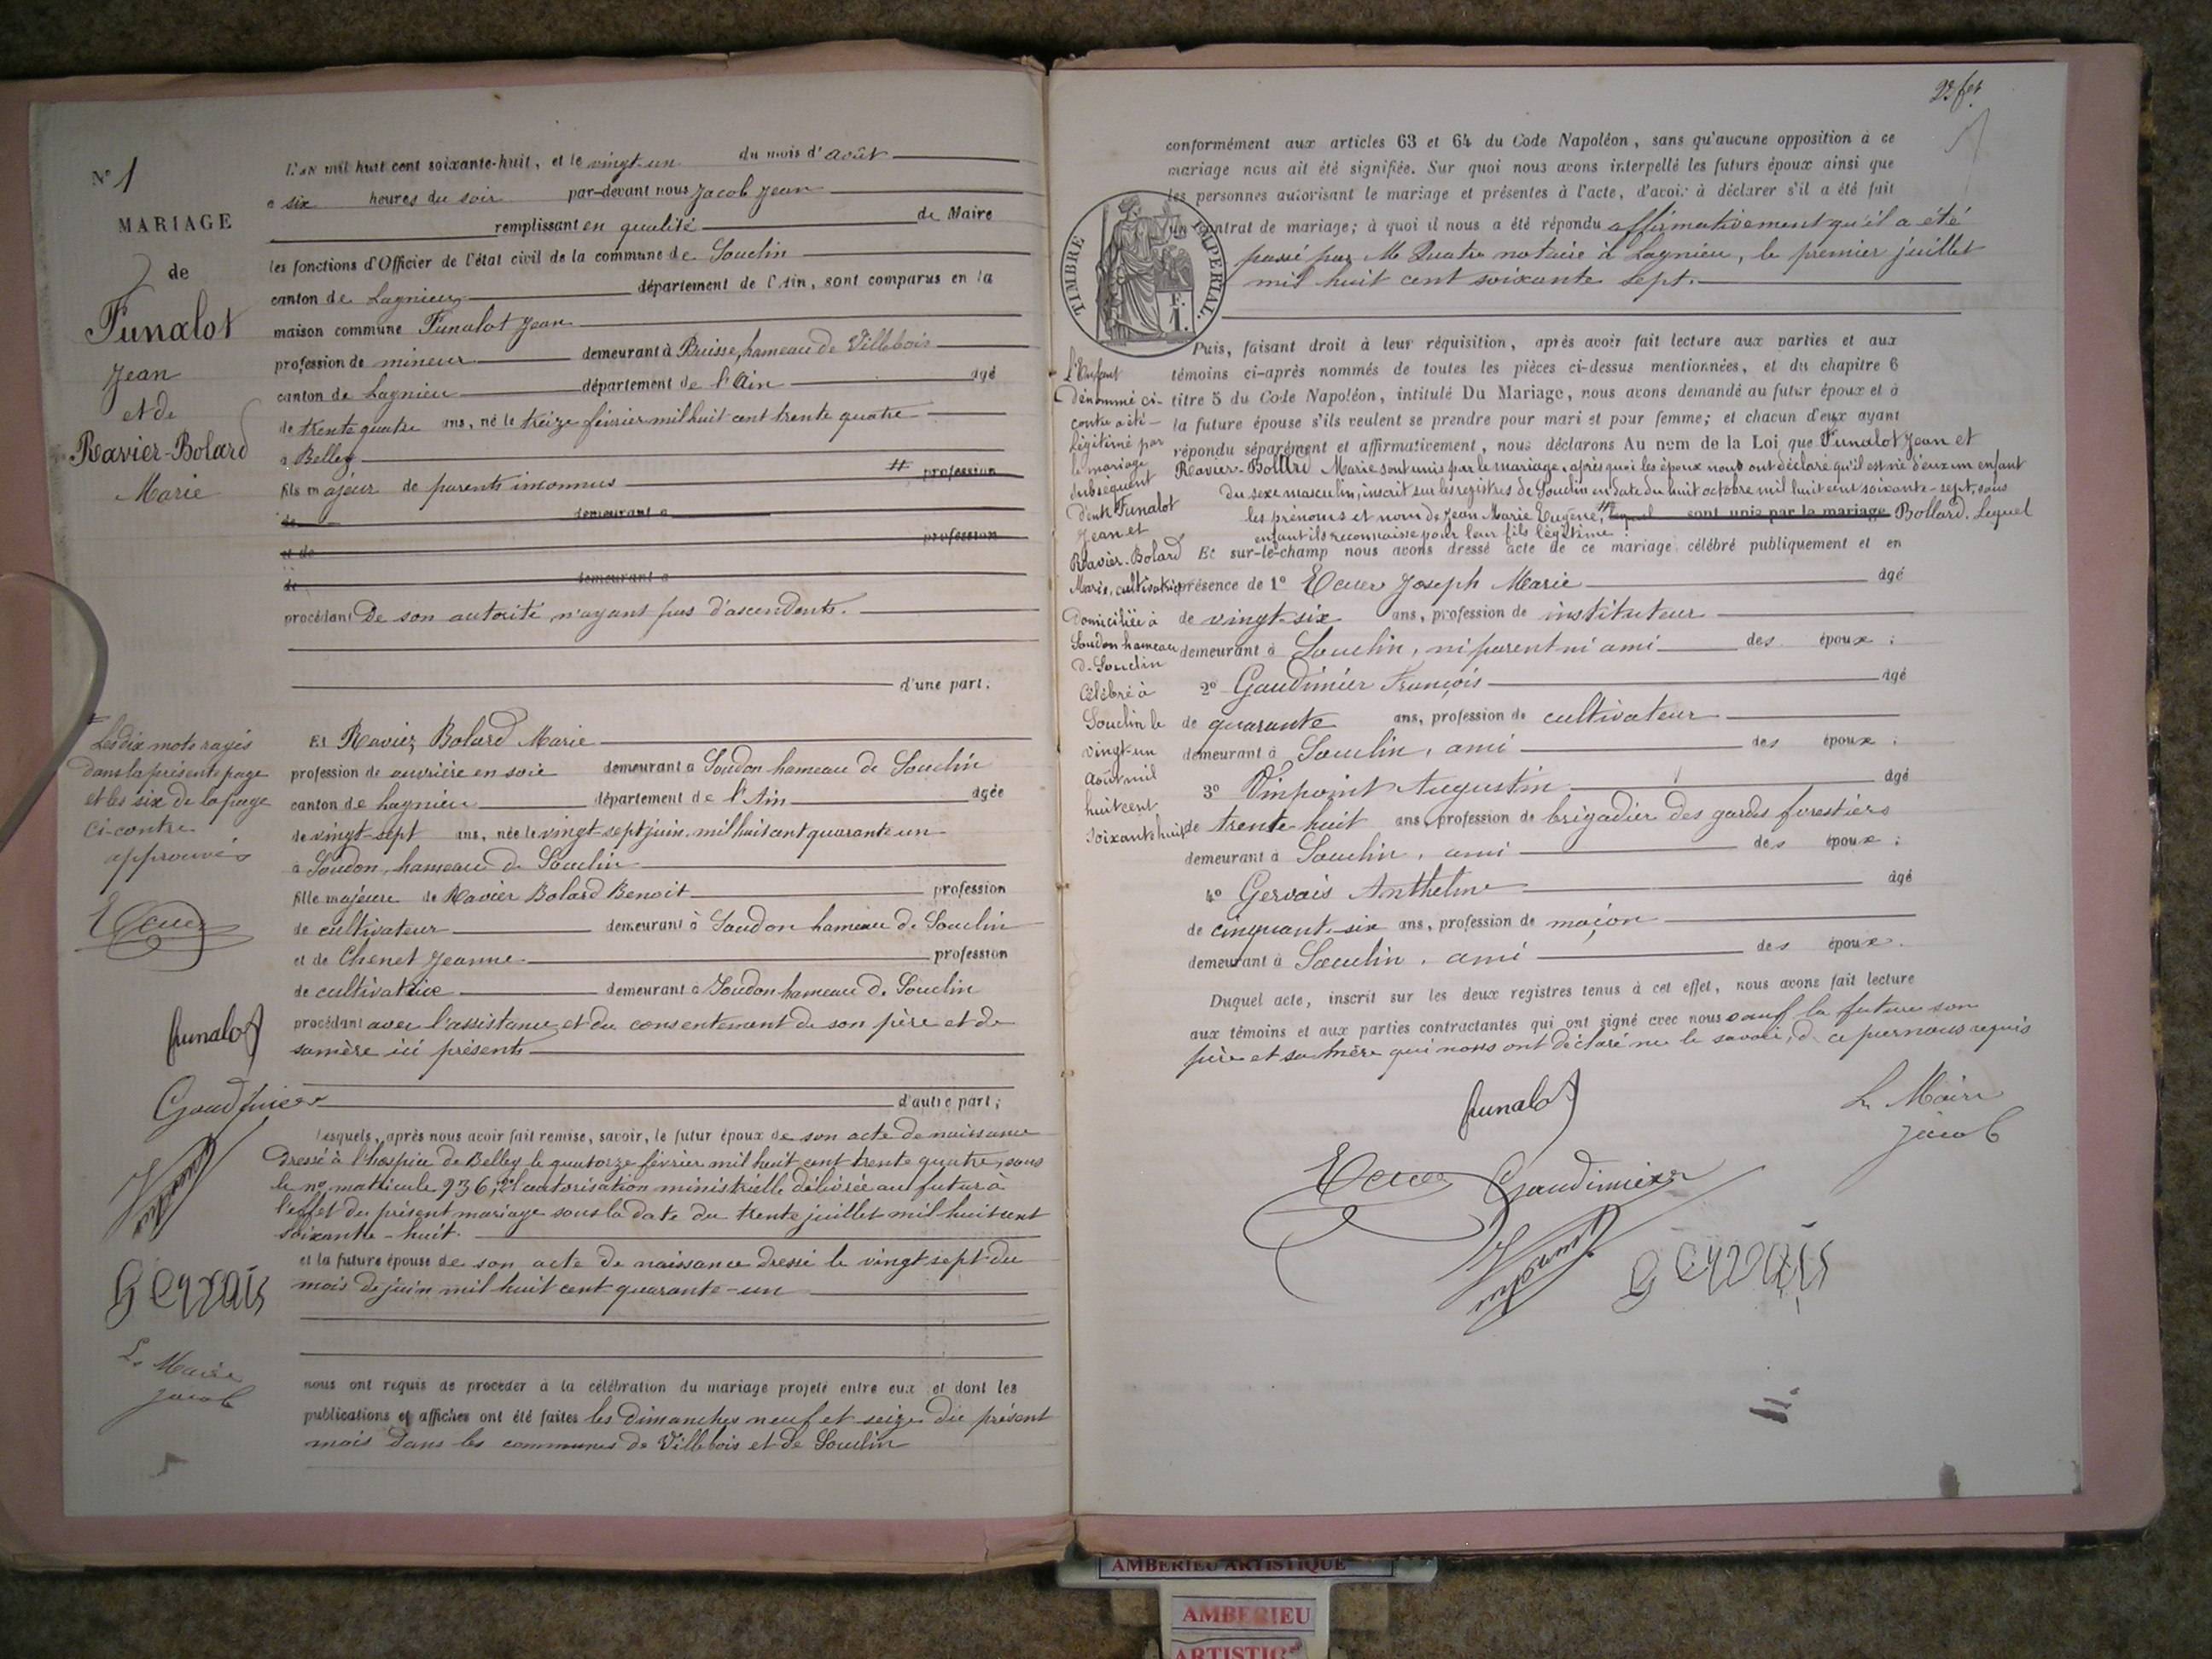 N° 1
MARIAGE
de
Funalot
Jean
et de
Ravier-Bolard
Marie
L'AN mil huit cent soixante-huit, et le vingt-un du mois d'août
a six heures du soir par-devant nous Jacob Jean
remplissant en qualité de Maire
les fonctions d'Officier de l'état civil de la commune de Souclin
canton de Lagnieu département de l'Ain, sont comparus en la
maison commune Funalot Jean
profession de mineur demeurant à Buisse, hameau de Villebois
canton de Lagnieu département de l'Ain agé
de trente quatre ans, né le treize février mil huit cent trente quatre
a Belley
fils majeur de parents inconnus # profession
de demeurant a
et de profession
de demeurant a
procédant De son autorité n'ayant pas d'ascendants.
d'une part.
# Les dix mots rayés
dans la présente page
et les six de la page
ci-contre
approuvés
Et Ravier Bolard Marie
profession de ouvrière en soie demeurant a Soudon hameau de Souclin
canton de Lagnieu département de l'Ain agée
de vingt-sept ans, née le vingt-sept juin mil huit cent quarante un
a Soudon, hameau de Souclin
fille majeure de Ravier Bolard Benoit profession
de cultivateur demeurant à Soudon hameau de Souclin
et de Chenet Jeanne profession
de cultivatrice demeurant à Soudon hameau de Souclin
procédant avec l'assistance et du consentement de son père et de
sa mère ici présents
d'autre part;
funalot
Gaudimier
Gervais
Le Maire
Jacob
Lesquels, après nous avoir fait remise, savoir, le futur époux de son acte de naissance
dressé à l'hospice de Belley le quatorze février mil huit cent trente quatre, sous
le no matricule 936, 2° l'autorisation ministérielle délivrée au futur à
l'effet du présent mariage sous la date du trente juillet mil huit cent
soixante-huit.
et la future épouse de son acte de naissance dressé le vingt sept du
mois de juin mil huit cent quarante-un
nous ont requis de procéder à la célébration du mariage projeté entre eux et dont les
publications et affiches ont été faites les dimanches neuf et seize du présent
mois dans les communes de Villebois et de Souclin
conformément aux articles 63 et 64 du Code Napoléon, sans qu'aucune opposition à ce
mariage nous ait été signifiée. Sur quoi nous avons interpellé les futurs époux ainsi que
les personnes autorisant le mariage et présentes à l'acte, d'avoir à déclarer s'il a été fait
un contrat de mariage; à quoi il nous a été répondu affirmativement qu'il a été
passé par Me Quatre notaire à Lagnieu, le premier juillet
mil huit cent soixante sept.
TIMBRE IMPERIAL.
1 F.
Puis, faisant droit à leur réquisition, après avoir fait lecture aux parties et aux
témoins ci-après nommés de toutes les pièces ci-dessus mentionnées, et du chapitre 6
titre 5 du Code Napoléon, intitulé Du Mariage, nous avons demandé au futur époux et à
la future épouse s'ils veulent se prendre pour mari et pour femme; et chacun d'eux ayant
répondu séparément et affirmativement, nous déclarons Au nom de la Loi que Funalot Jean et
Ravier-Bollard Marie sont unis par le mariage, après quoi les époux nous ont déclaré qu'il est né d'eux un enfant
du sexe masculin, inscrit sur les registres de Souclin en date du huit octobre mil huit cent soixante-sept, sous
les prénoms et nom de Jean Marie Eugène, # lequel sont unis par le mariage Bollard. Lequel
enfant ils reconnaisse pour leur fils légitime.
L'Enfant
dénommé ci-
contre a été
légitimé par
le mariage
subséquent
d'entre Funalot
Jean et
Ravier-Bolard
Marie, cultivatrice
domiciliée à
Soudon hameau
de Souclin
Célébré à
Souclin le
vingt-un
août mil
huit cent
soixante huit
Et sur-le-champ nous avons dressé acte de ce mariage célébré publiquement et en
présence de 1° Ecuer Joseph Marie agé
de vingt-six ans, profession de instituteur
demeurant à Souclin, ni parent ni ami des époux;
2° Gaudimier François agé
de quarante ans, profession de cultivateur
demeurant à Souclin, ami des époux;
3° Vinpoint Augustin agé
de trente huit ans, profession de brigadier des gardes forestiers
demeurant à Souclin, ami des époux;
4° Gervais Anthelme agé
de cinquante-six ans, profession de maçon
demeurant à Souclin, ami des époux.
Duquel acte, inscrit sur les deux registres tenus à cet effet, nous avons fait lecture
aux témoins et aux parties contractantes qui ont signé avec nous sauf la future son
père et sa mère qui nous ont déclaré ne le savoir, de ce par nous requis
funalot
Le Maire
Jacob
Ecuer
Gaudimier
Gervais
AMBERIEU ARTISTIQUE
AMBERIEU
ARTISTIQ